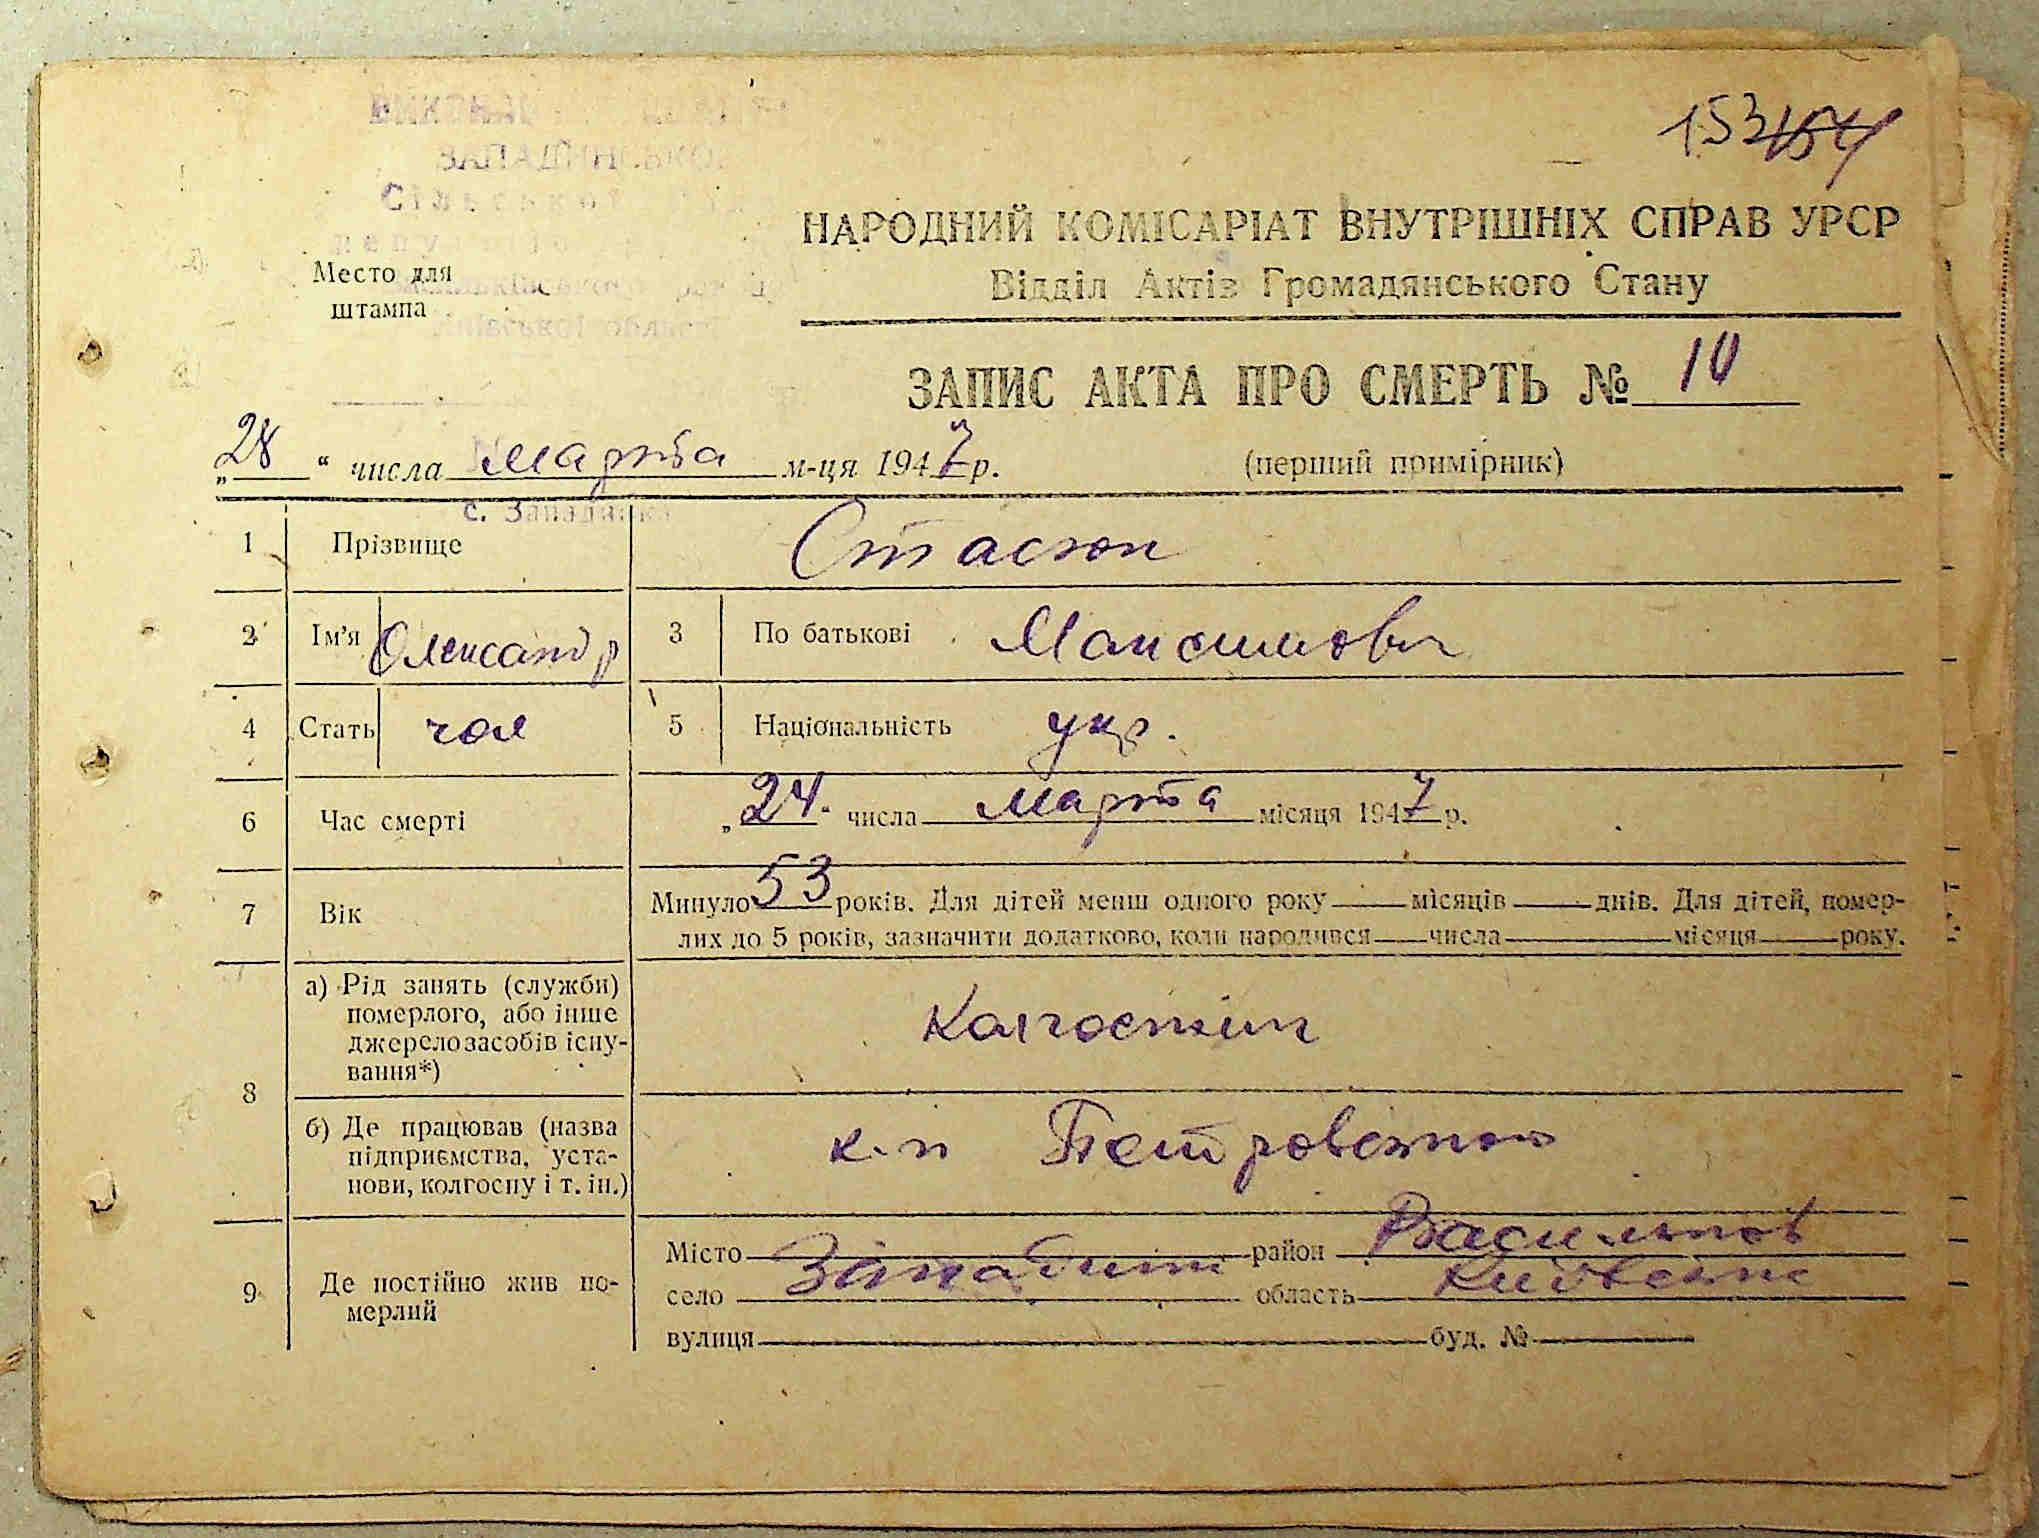 153 154
НАРОДНИЙ КОМІСАРІАТ ВНУТРІШНІХ СПРАВ УРСР
Відділ Актів Громадянського Стану
Место для
штампа
ЗАПИС АКТА ПРО СМЕРТЬ № 10
„28“ числа марта м-ця 1947 р. (перший примірник)
с. Западинка
1 Прізвище Стасюк
2 Ім'я Олександр 3 По батькові Максимович
4 Стать чол 5 Національність укр.
6 Час смерті „24" числа марта місяця 1947 р.
7 Вік Минуло 53 років. Для дітей менш одного року місяців днів. Для дітей, помер-
лих до 5 років, зазначити додатково, коли народився числа місяця року.
8 а) Рід занять (служби)
померлого, або інше
джерело засобів існу-
вання*)
Колгоспник
б) Де працював (назва
підприємства, уста-
нови, колгоспу і т. ін.)
к-п Петровського
9 Де постійно жив по-
мерлий
Місто район Васильков
село Западинка область Київська
вулиця буд. №